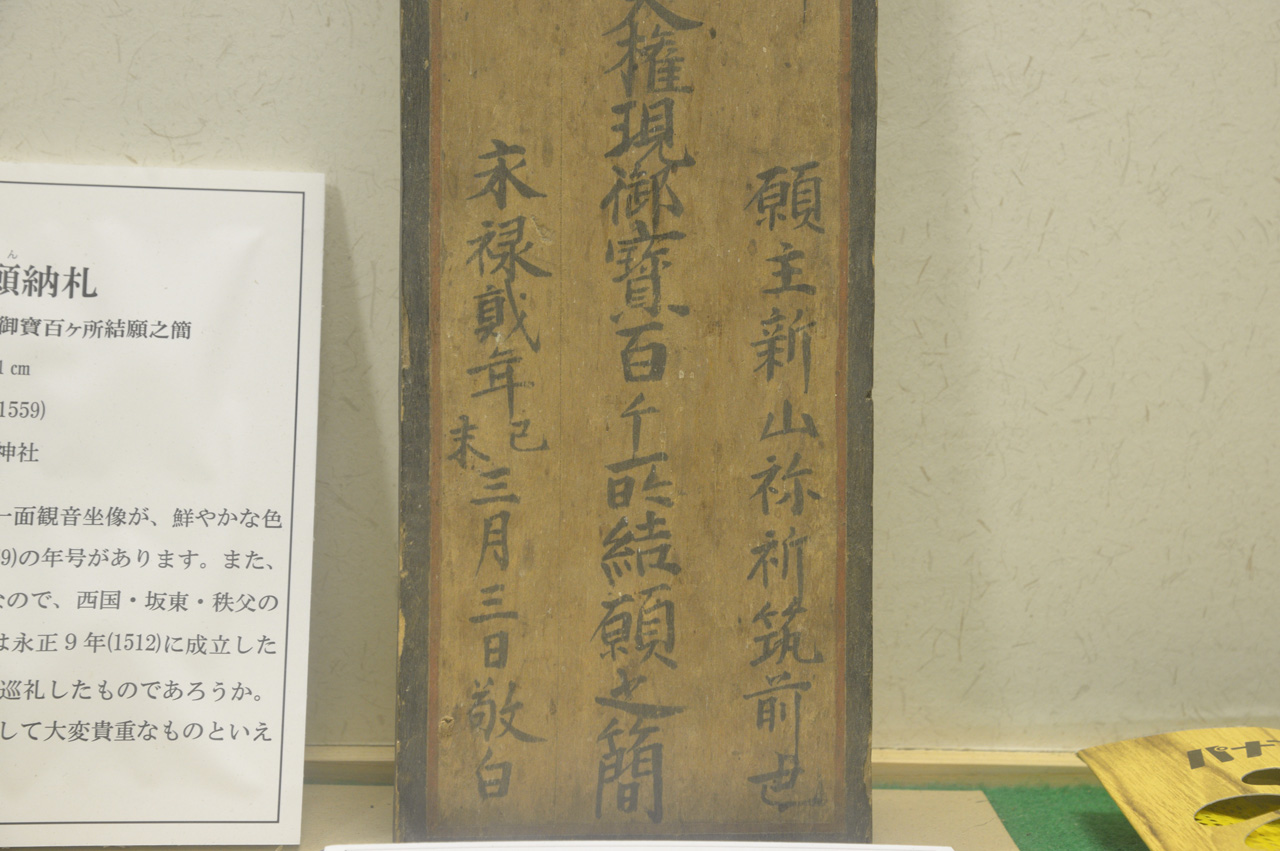 願主新山祢祈筑前世
大権現御寳百ケ所結願之簡
永禄貮年己未三月三日敬白
願納札
御寶百ヶ所結願之簡
1㎝
1559)
神社
一面観音坐像が、鮮やかな色
9)の年号があります。また、
なので、西国・坂東・秩父の
は永正9年(1512)に成立した
巡礼したものであろうか。
して大変貴重なものといえ